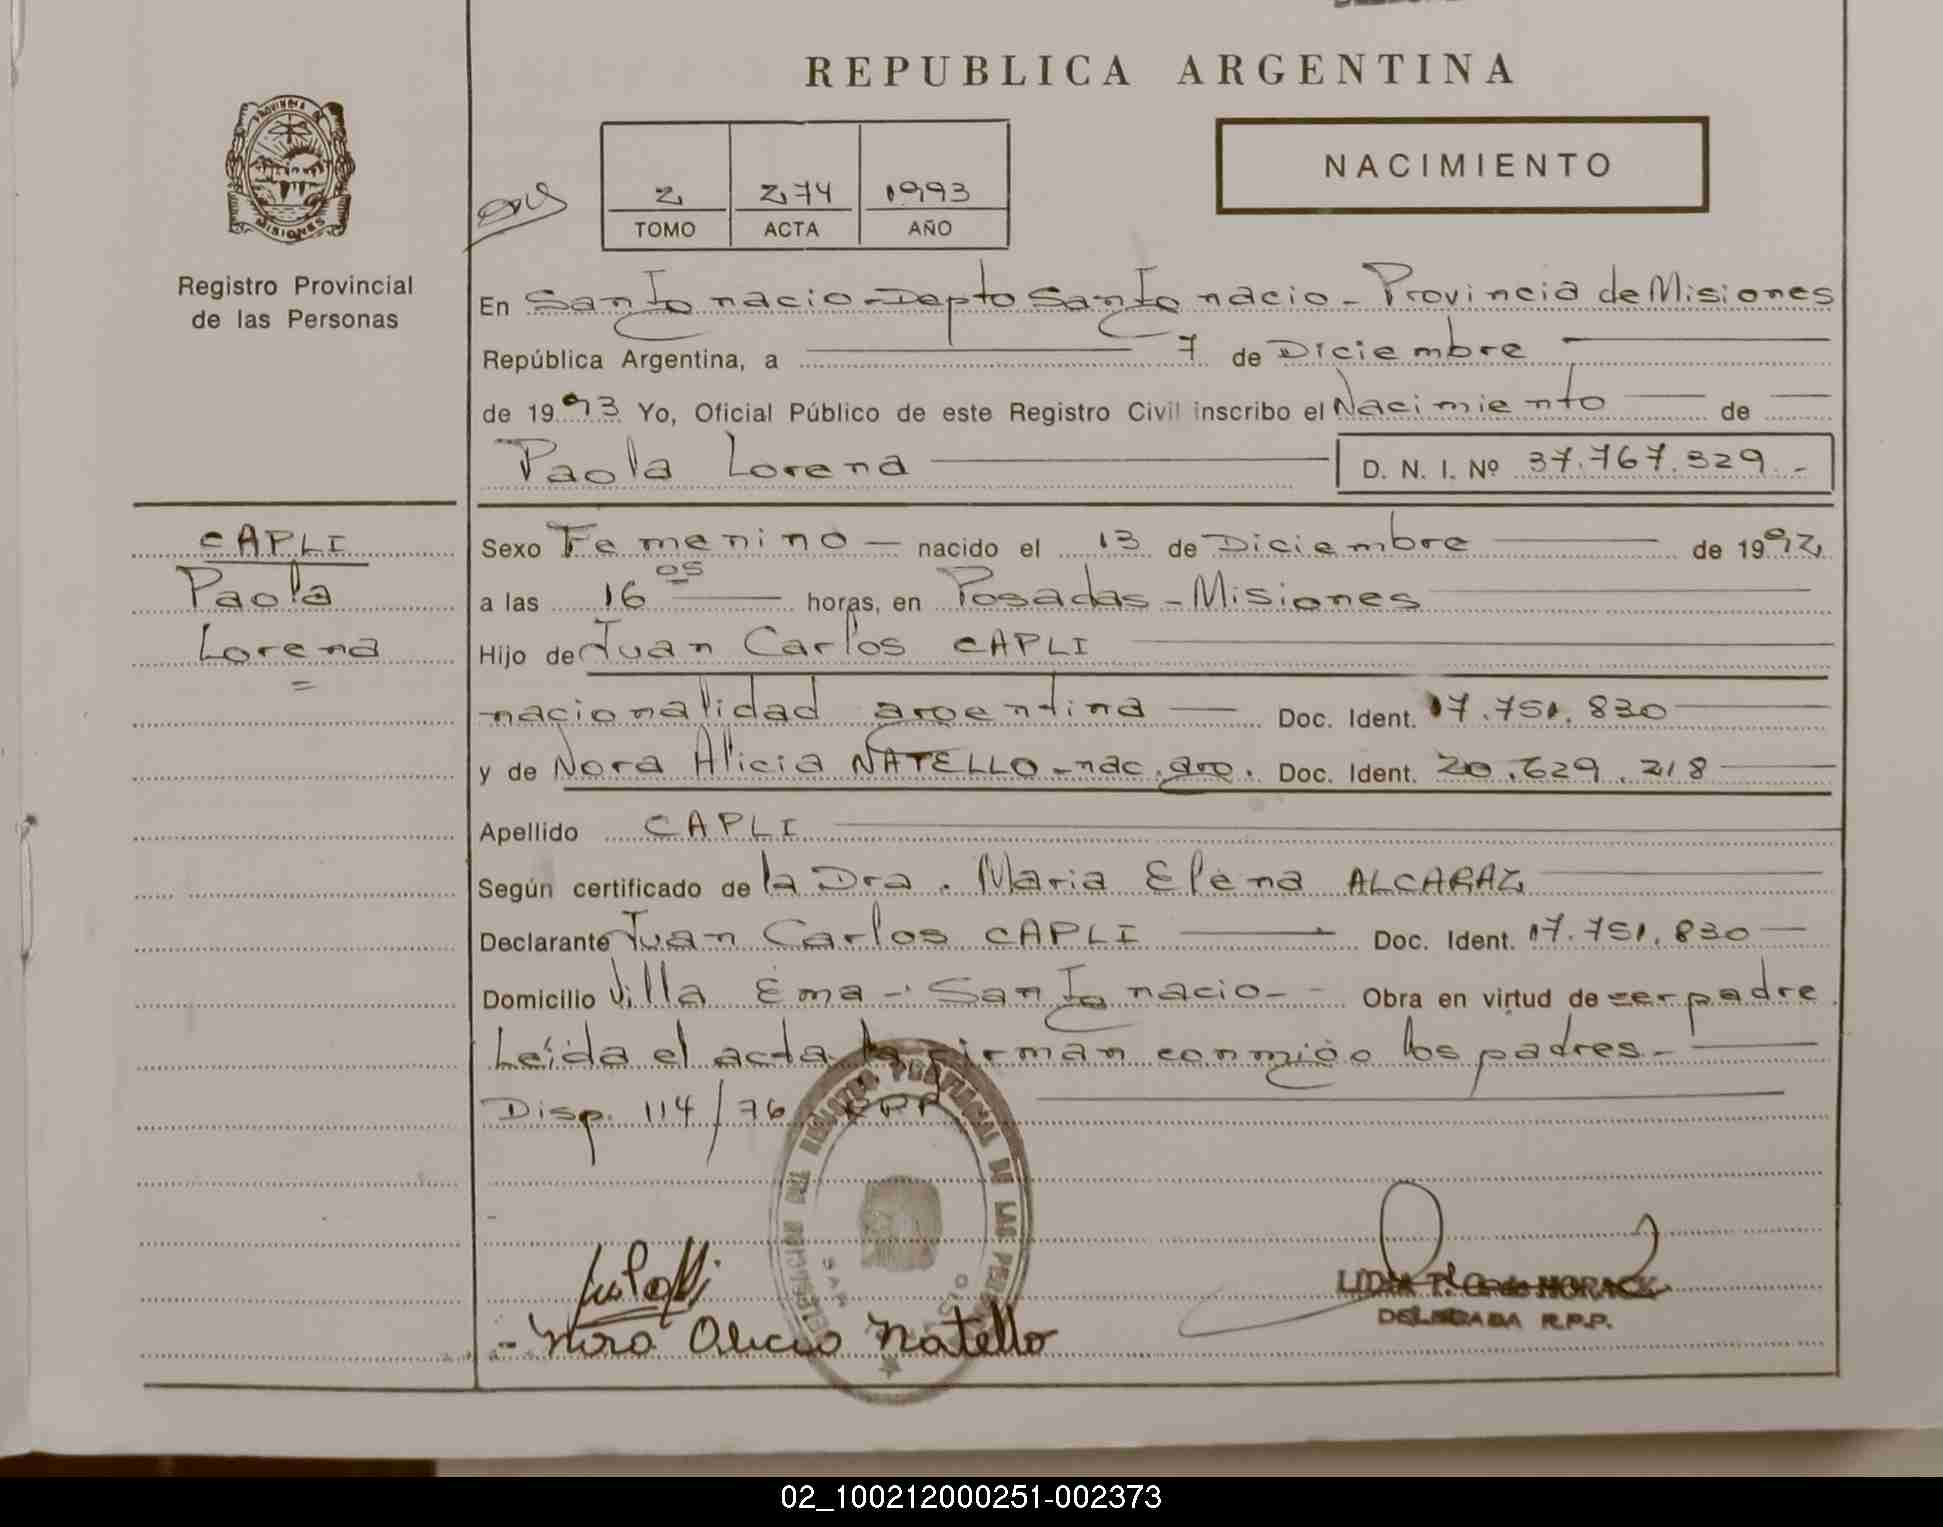 REPUBLICA ARGENTINA
PROVINCIA DE
MISIONES
NACIMIENTO
2 274 1993
TOMO ACTA AÑO
Registro Provincial
de las Personas
En San Ignacio - Depto San Ignacio - Provincia de Misiones
República Argentina, a 7 de Diciembre
de 1993 Yo, Oficial Público de este Registro Civil inscribo el Nacimiento de
Paola Lorena D. N. I. Nº 37.767.329.-
CAPLI
Paola
Lorena
Sexo Femenino - nacido el 13 de Diciembre de 1992
a las 16 05 horas, en Posadas - Misiones
Hijo de Juan Carlos CAPLI
nacionalidad argentina Doc. Ident. 17.751.830
y de Nora Alicia NATELLO - nac. arg. Doc. Ident. 20.629.218
Apellido CAPLI
Según certificado de la Dra. Maria Elena ALCARAZ
Declarante Juan Carlos CAPLI Doc. Ident. 17.751.830
Domicilio Villa Ema - San Ignacio - Obra en virtud de ser padre.
Leída el acta la firman conmigo los padres.-
Disp. 114/76 RPP
REGISTRO PROVINCIAL DE LAS
Nora Alicia Natello
DELEGADA R.P.P.
02_100212000251-002373